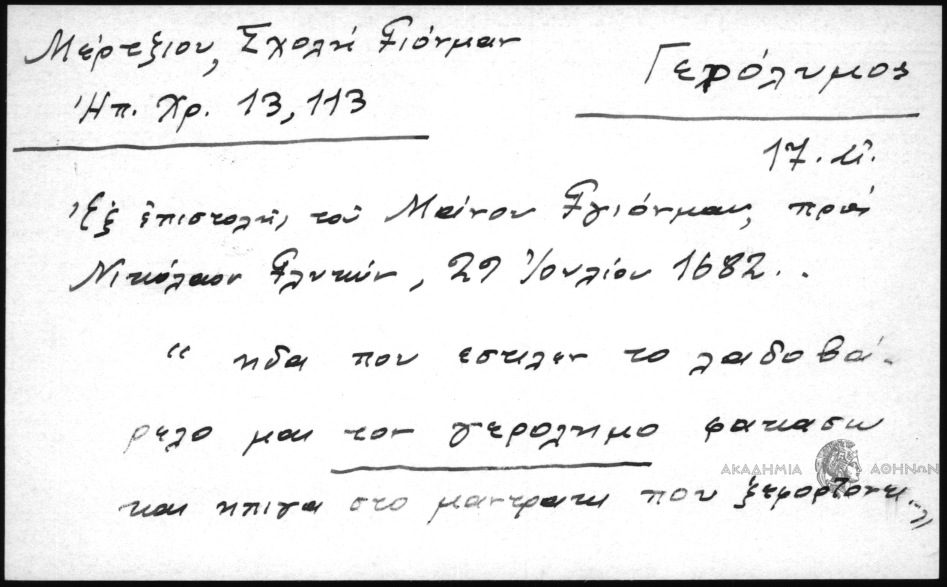 Μέρτζιου, Σχολή Γκιόνμαν
Γερόλυμος
Ἠπ. Χρ. 13, 113
17. αἰ.
Ἐξ ἐπιστολῆς τοῦ Μάνου Γγιόνμα, πρὸς
Νικόλαον Γλυκύν, 29 Ἰουλίου 1682..
“ ηδα που εστιλεν το λαδοβά-
ρελο μαι τον γερολημο φακασω
και ηπιγα στο μαντρακι που ξεφορτονι..»
ΑΚΑΔΗΜΙΑ ΑΘΗΝΩΝ